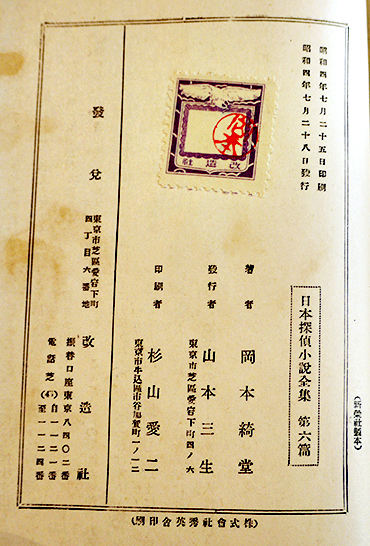 昭和四年七月二十五日印刷
昭和四年七月二十八日發行
日本探偵小說全集 第六篇
著者 岡本綺堂
發行者 山本三生
東京市芝區愛宕下町四ノ六
印刷者 杉山愛二
東京市牛込區市谷加賀町一ノ一二
發兌
東京市芝區愛宕下町
四丁目六番地
改造社
振替口座東京八四〇二番
電話芝(43)自一一二一番
至一一二四番
改造社
(新榮社製本)
(株式會社秀英舍印刷)